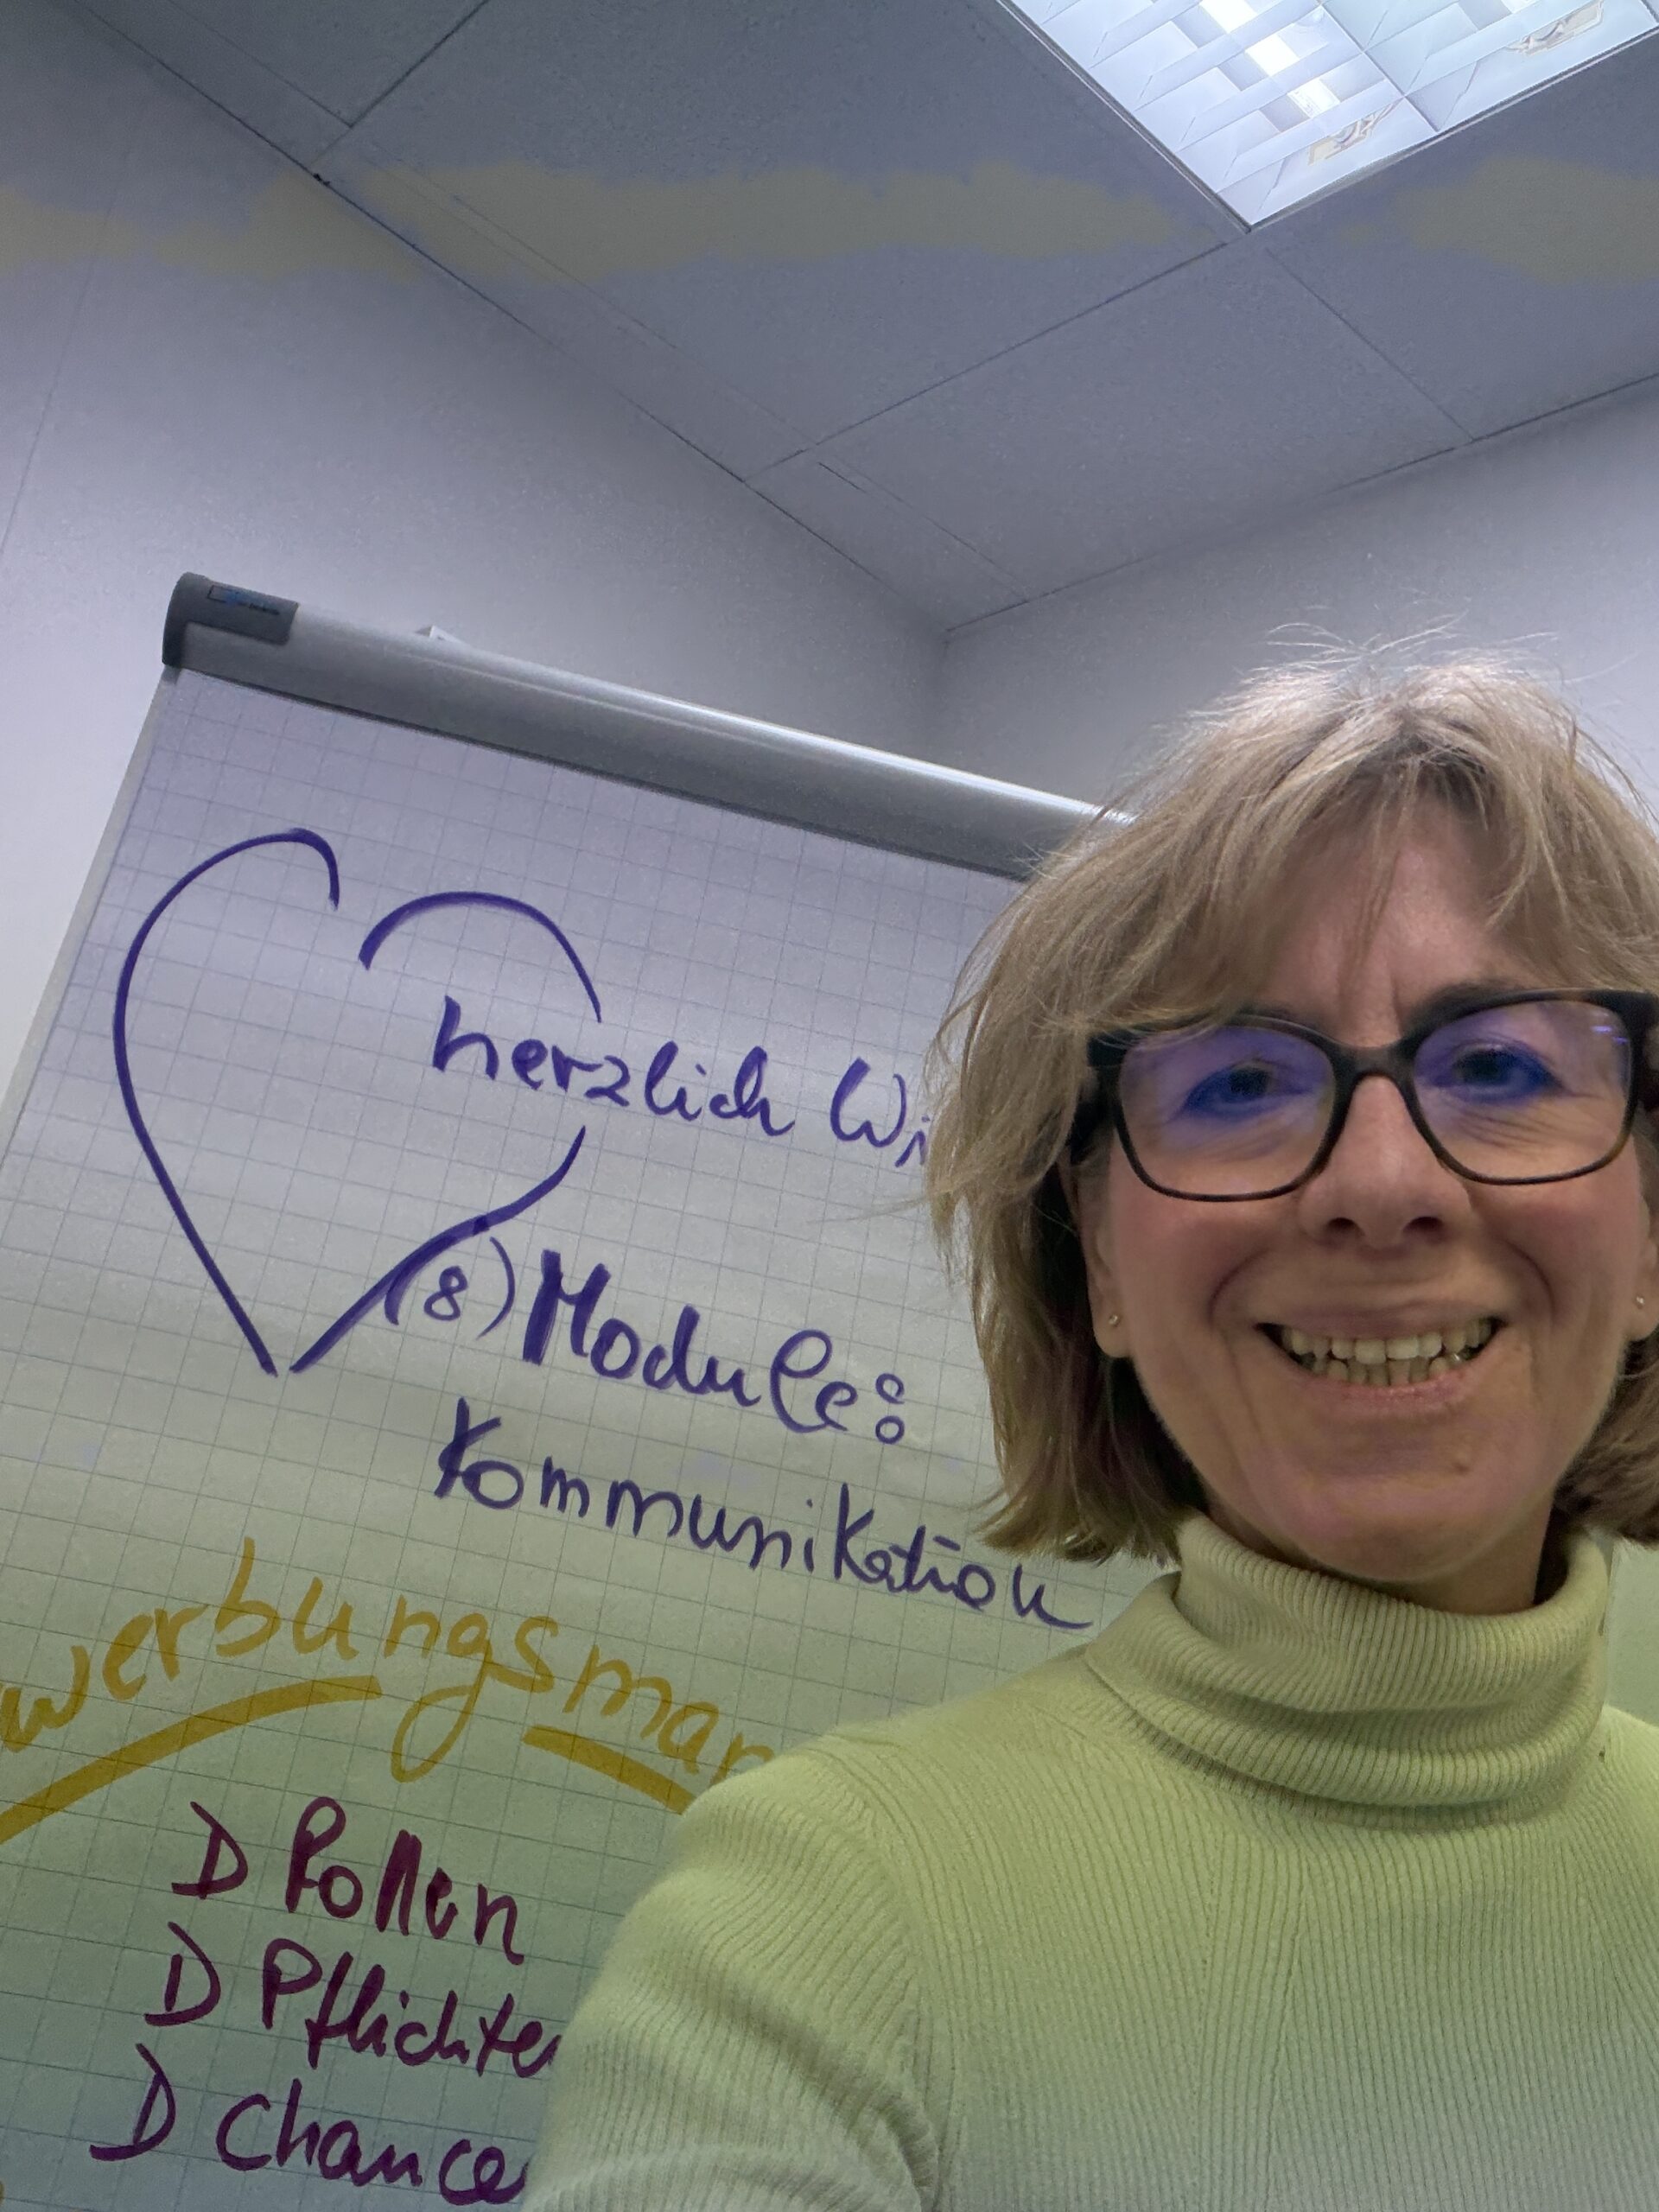 herzlich Wi
(8) Module:
Kommunikation
werbungsmar
Rollen
Pflichte
Chance